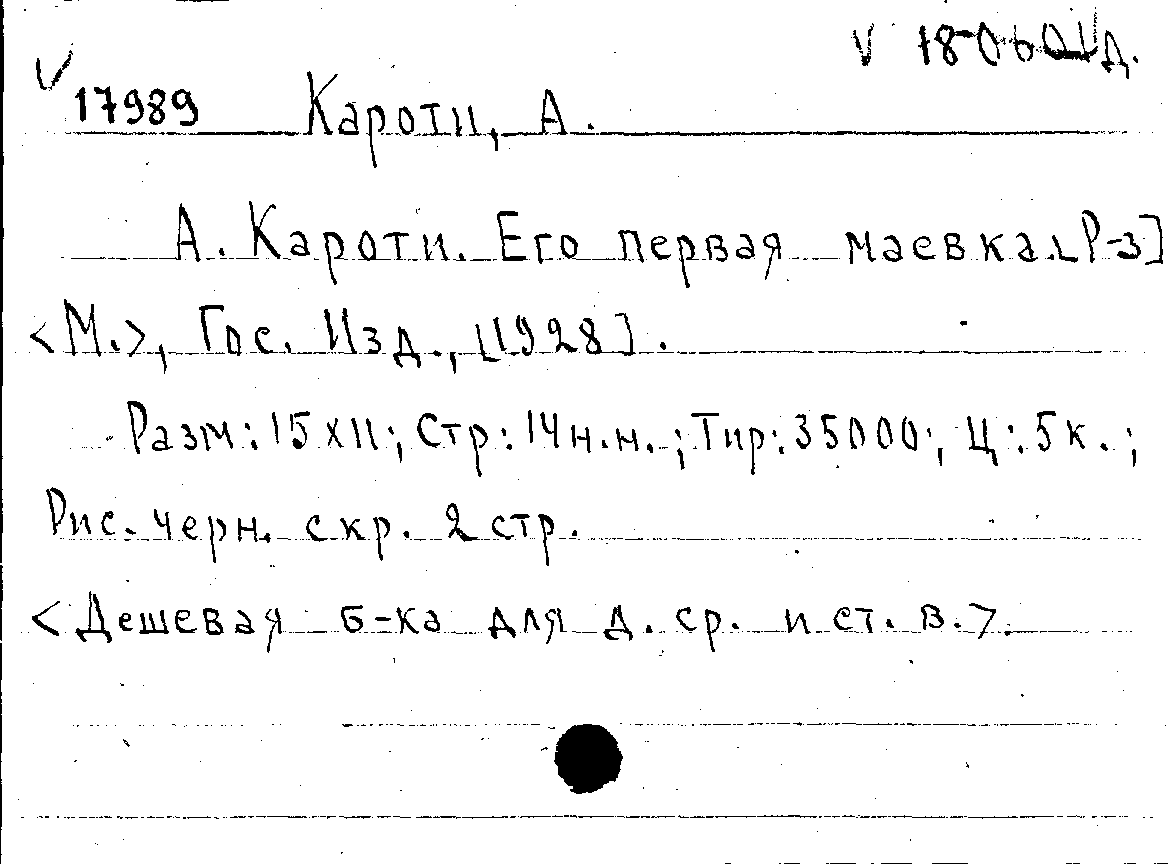 V 18-060
V 17989 Кароти, А.
А. Кароти. Его первая маевка. [Р-з]
<М.>, Гос. Изд., [1928].
Разм: 15х11; Стр: 14 н.н.; Тир: 35000; Ц: 5к.;
Рис. черн. с кр. 2 стр.
<Дешевая б-ка для д. ср. и ст. в.>.